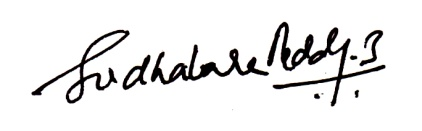 Sudhakara Reddy. B